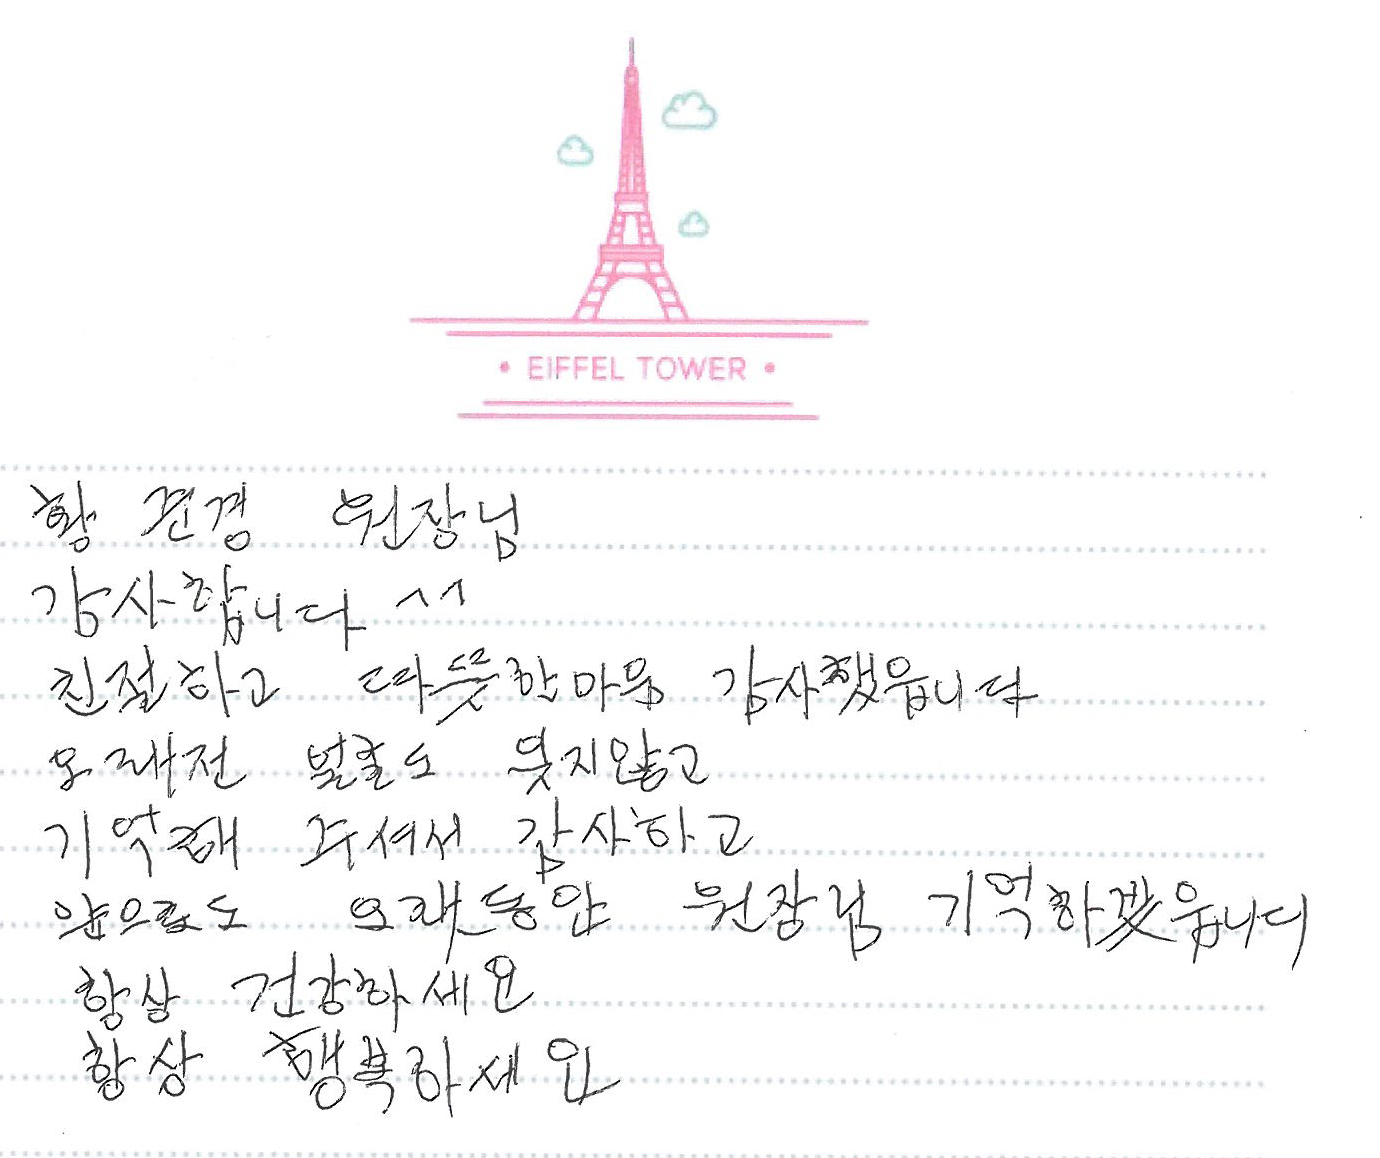 • EIFFEL TOWER •
황 원장님
감사합니다 ^^
친절하고 따뜻한마음 감사했읍니다
오래전 도 잊지않고
기억해 주셔서 감사하고
앞으로도 오랜동안 원장님 기억하겠읍니다
항상 건강하세요
항상 행복하세요